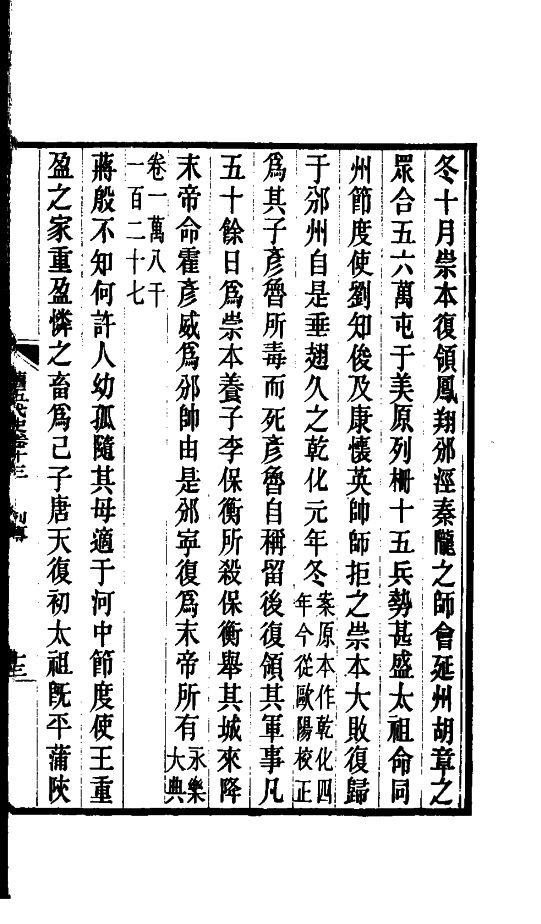 冬十月崇本復領鳳翔邠涇秦隴之師會延州胡章之
眾合五六萬屯于美原列柵十五兵勢甚盛太祖命同
州節度使劉知俊及康懷英帥師拒之崇本大敗復歸
于邠州自是垂翅久之乾化元年冬案原本作乾化四年今從歐陽校正
爲其子彥魯所毒而死彥魯自稱留後復領其軍事凡
五十餘日爲崇本養子李保衡所殺保衡舉其城來降
末帝命霍彥威爲邠帥由是邠寧復爲末帝所有永樂大典
卷一萬八千一百二十七
蔣殷不知何許人幼孤隨其母適于河中節度使王重
盈之家重盈憐之畜爲己子唐天復初太祖旣平蒲陝
舊五代史卷十三 列傳 十三